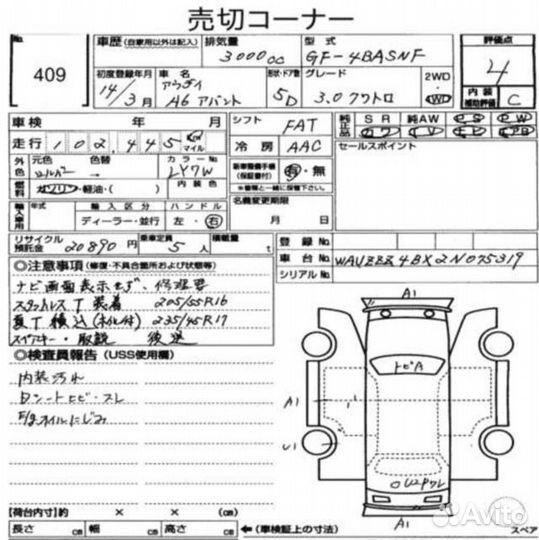 売切コーナー
No. 409
車歴 (自家用以外は記入)
排気量 3000 cc
型式 GF-4BASNF
評価点 4
内装補助評価 C
初度登録年月 14/3月
車名 アウディ A6 アバント
形状・ドア数 5D
グレード 3.0クワトロ
2WD 4WD
車検 年 月
シフト FAT
純正品 SR 純AW PS PW
カワ TV ナビ エアB
走行 102,445 km マイル
冷房 AAC
セールスポイント
外色 元色 シルバー 色替 カラーNo. LY7W
内装色
新車整備手帳(保証書付) 有・無
※書類と一緒に提出下さい。
燃料 ガソリン・軽油・( )
名義変更期限 月 日
輸入車用 年式 輸入区分 ディーラー・並行 ハンドル 左・右
リサイクル預託金 20890円 乗車定員 5人 積載量 t
登録No.
車台No. WAUZZZ4BX2N075319
シリアルNo.
◎注意事項 (修復・不具合箇所および状態等)
ナビ画面表示せず、修理要
スタッドレスT 装着 205/55R16
夏T積込(ホイル付) 235/45R17
スペアキー・取説 後送
◎検査員報告 (USS使用欄)
内装汚れ
Dシートヒビ・スレ
E/gオイルにじみ
A1
トビA
A1
U1
A1
【荷台内寸】約 × × (cm)
長さ cm 幅 cm 高さ cm ←(車検証上の寸法)
スペア
Avito